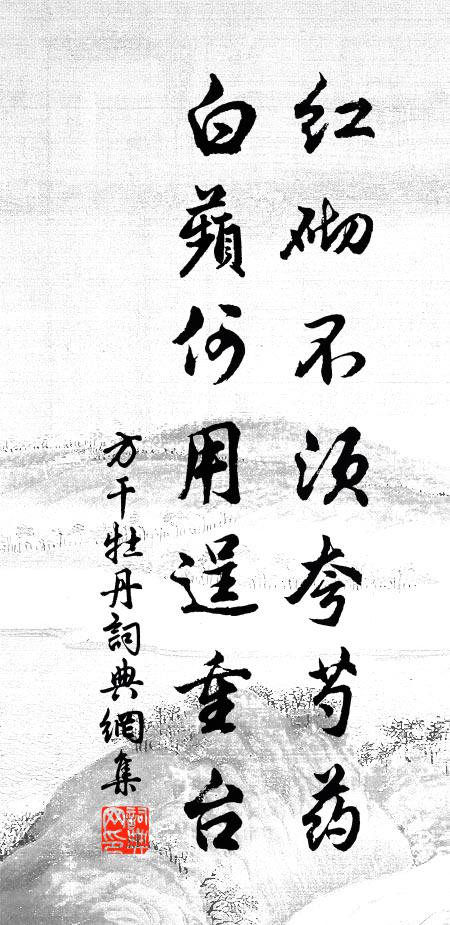 红砌不须夸芍药
白蘋何用逞重台
方干牡丹詞典網集